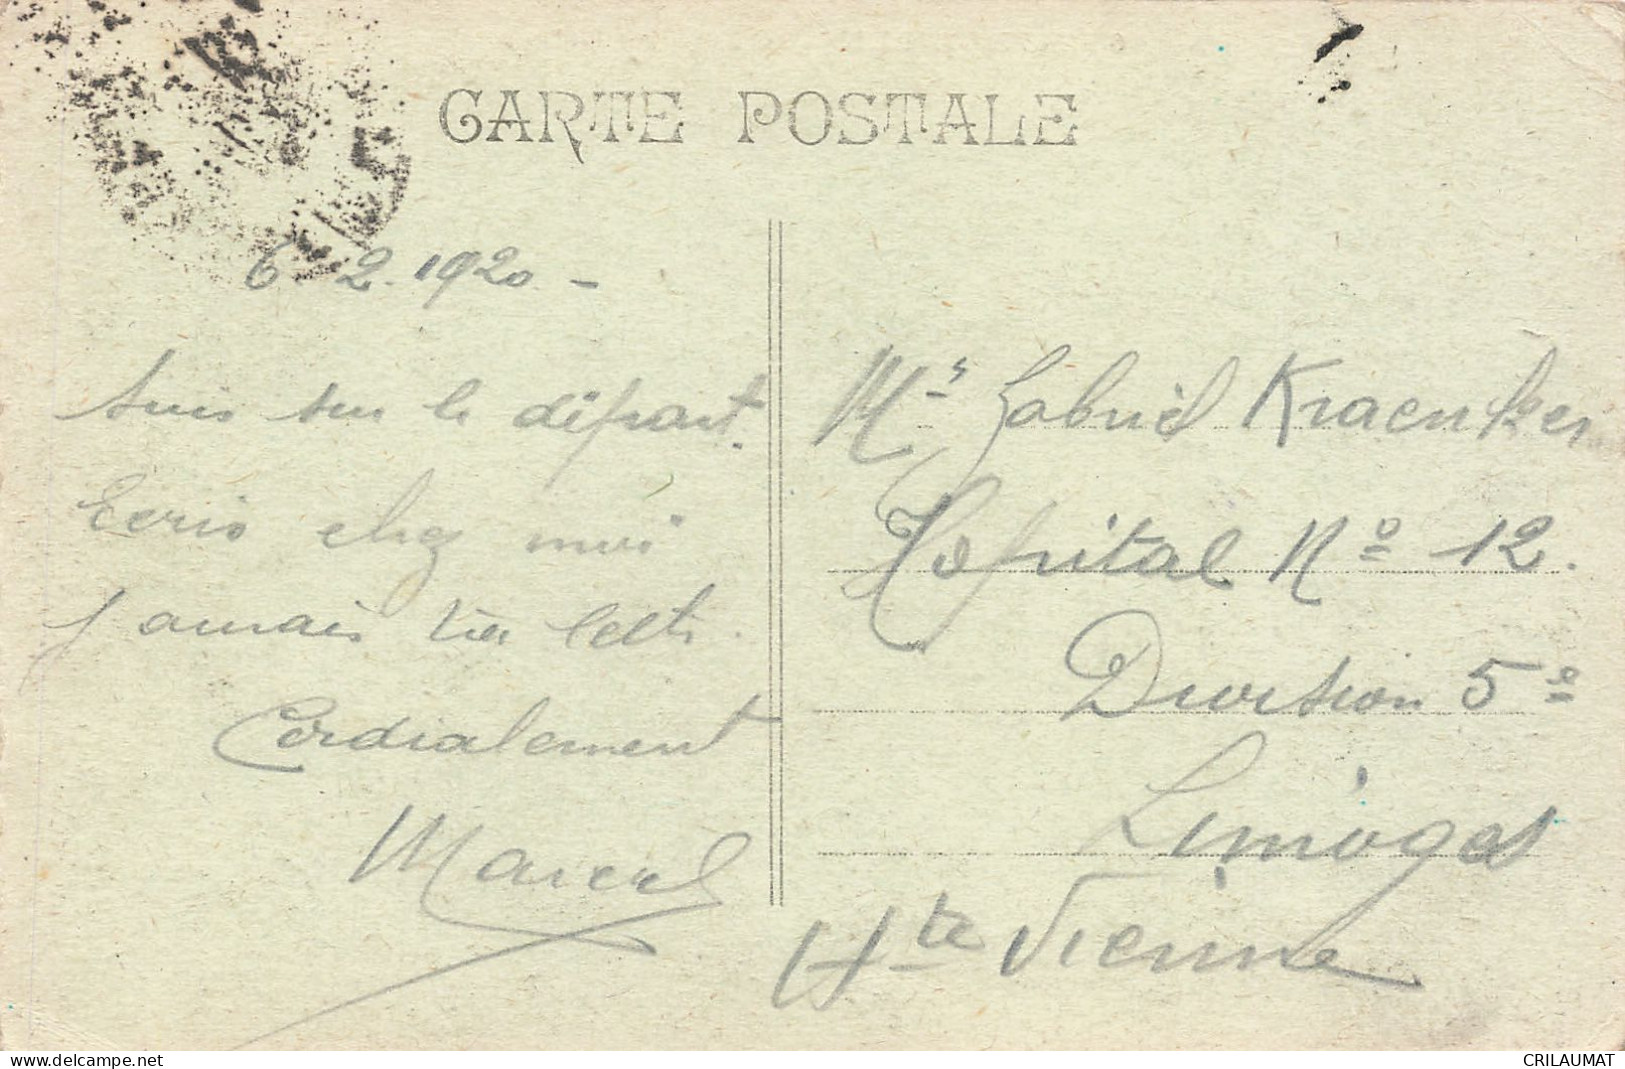 CARTE POSTALE
6-2.1920.-
Suis sur le départ.
Ecris chez moi
J'aurais ta lettr.
Cordialement
Marcel
Mr Gabriel Kraenker
Hopital No 12.
Division 5e
Limoges
Hte Vienne
www.delcampe.net
CRILAUMAT